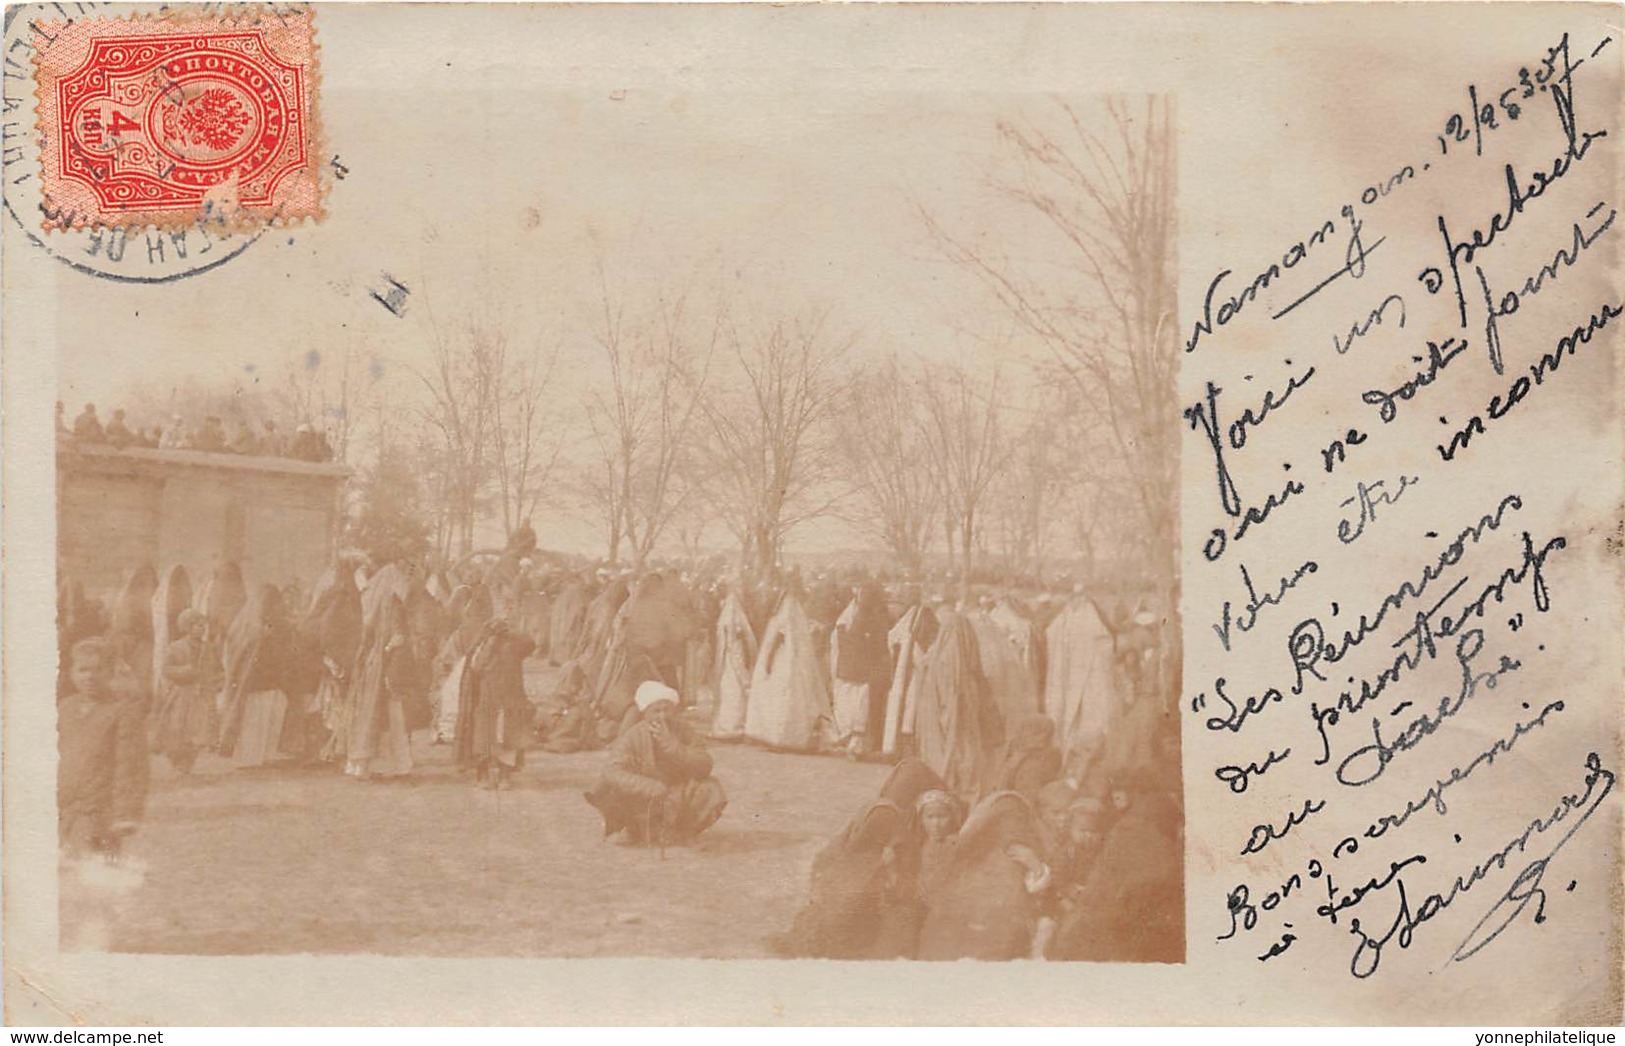 ПОЧТОВАЯ МАРКА
4
КОП
Namangan. 12/25 3.07
Voici un spectacle
qui ne doit point
vous être inconnu
"Les Réunions
du printemps
au Tâche".
Bons souvenirs
à tous.
yonnephilatelique